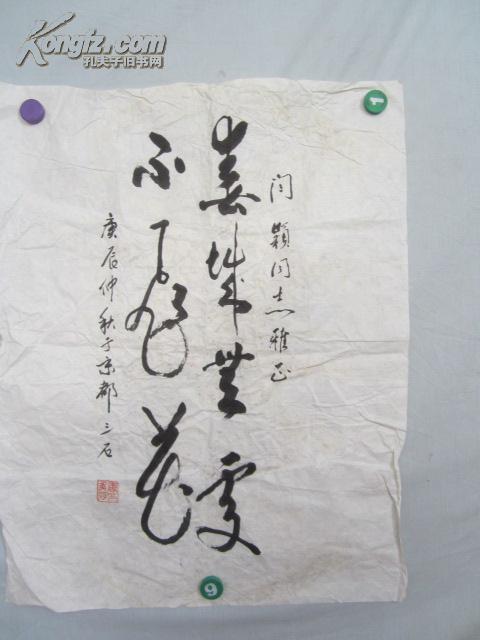 Kongfz.com
孔夫子旧书网
闫颢同志雅正
春城无处
不飞花
庚辰仲秋于京都三石
1
9